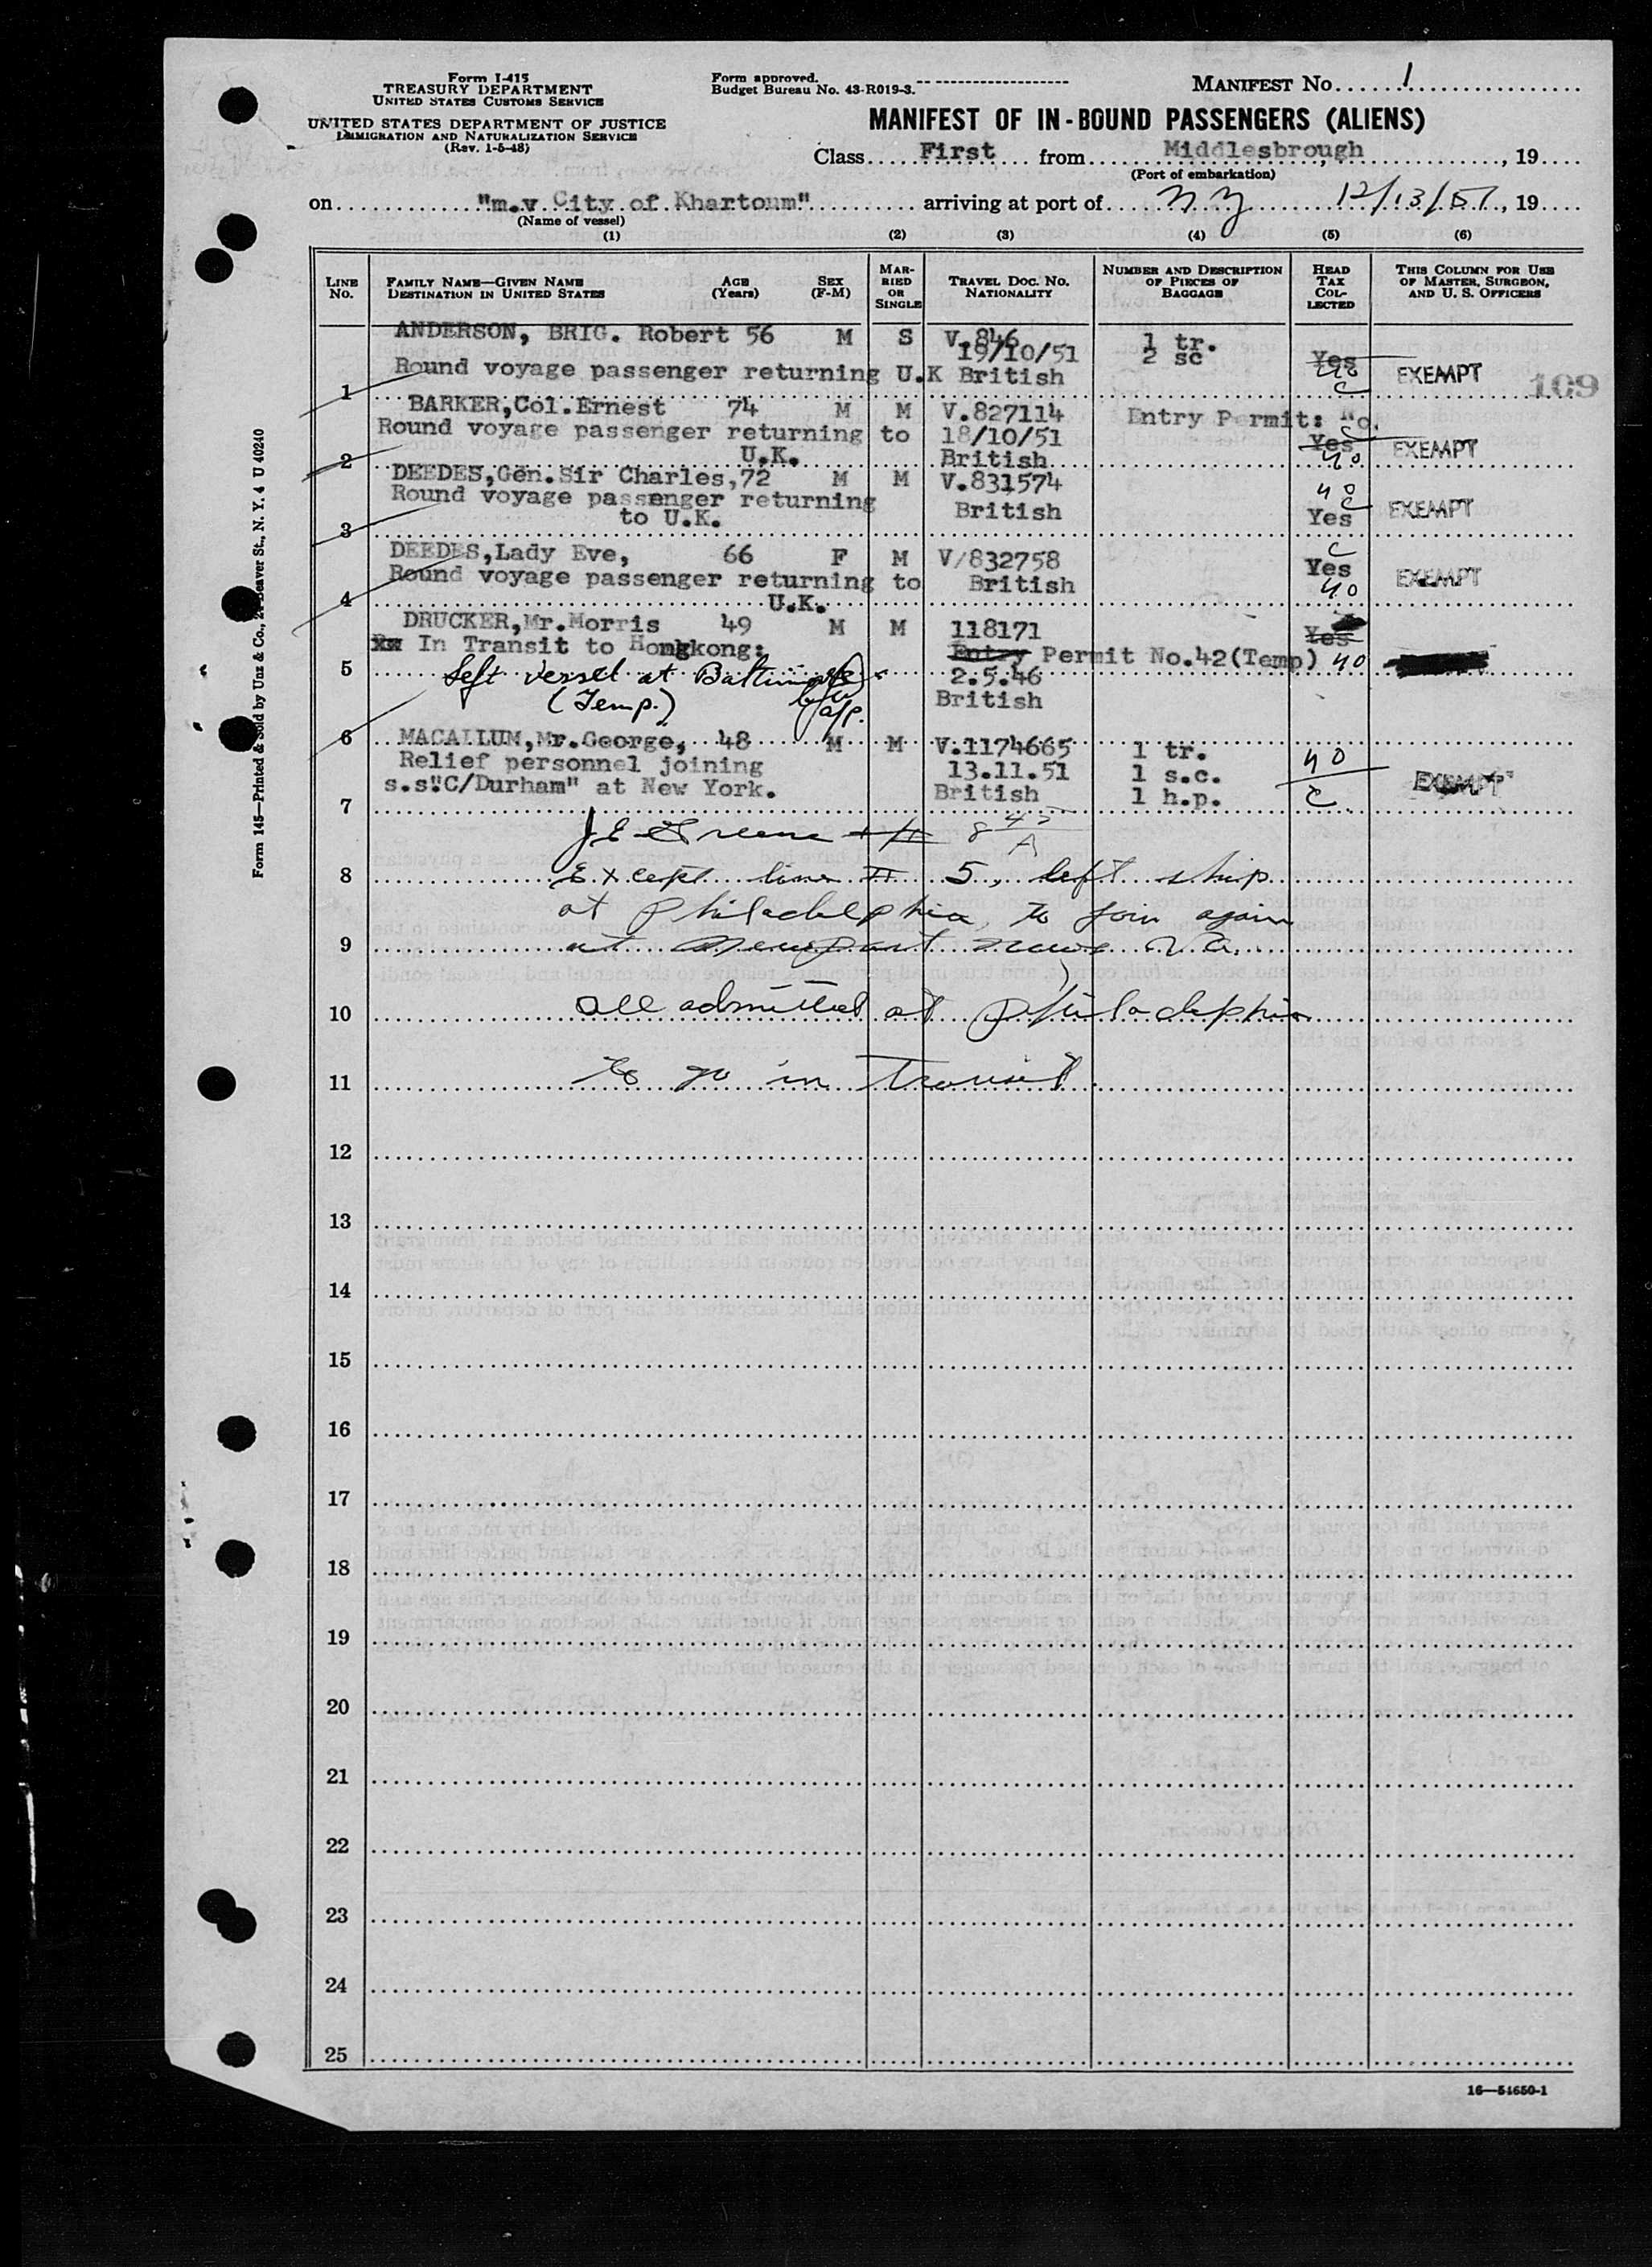 Form I-415
TREASURY DEPARTMENT
UNITED STATES CUSTOMS SERVICE
UNITED STATES DEPARTMENT OF JUSTICE
IMMIGRATION AND NATURALIZATION SERVICE
(Rev. 1-5-48)
Form approved.
Budget Bureau No. 43-R019-3.
MANIFEST No. 1
MANIFEST OF IN-BOUND PASSENGERS (ALIENS)
Class First from Middlesbrough, , 19
(Port of embarkation)
on "m.v City of Khartoum" arriving at port of N Y 12/13/51, 19
(Name of vessel)
(1) (2) (3) (4) (5) (6)
LINE No. FAMILY NAME—GIVEN NAME DESTINATION IN UNITED STATES AGE (Years) SEX (F-M) MARRIED OR SINGLE TRAVEL DOC. NO. NATIONALITY NUMBER AND DESCRIPTION OF PIECES OF BAGGAGE HEAD TAX COLLECTED THIS COLUMN FOR USE OF MASTER, SURGEON, AND U. S. OFFICERS
ANDERSON, BRIG. Robert 56 M S V.846 1 tr.
19/10/51 2 sc Yes
Round voyage passenger returning U.K British no EXEMPT 109
1 C
BARKER,Col.Ernest 74 M M V.827114 Entry Permit: No.
Round voyage passenger returning to 18/10/51 C Yes EXEMPT
2 U.K. British no
DEEDES,Gen.Sir Charles,72 M M V.831574 no
Round voyage passenger returning British C EXEMPT
to U.K. Yes
3
DEEDES,Lady Eve, 66 F M V/832758 C Yes
Round voyage passenger returning to British no EXEMPT
4 U.K.
DRUCKER,Mr.Morris 49 M M 118171 Yes
In Transit to Hongkong: Entry Permit No.42(Temp) no
5 Left vessel at Baltimore 2.5.46
(Temp.) British
6 MACALLUM,Mr.George, 48 M M V.1174665 1 tr. no
Relief personnel joining 13.11.51 1 s.c.
s.s"C/Durham" at New York. British 1 h.p. C EXEMPT
7
J E Greene 8 45 A
8 Except line # 5, left ship
at Philadelphia, to join again
9 at Newport News Va.
10 all admitted at Philadelphia
11 to go in Transit
12
13
14
15
16
17
18
19
20
21
22
23
24
25
16—54650-1
Form 145—Printed & Sold by Unz & Co., Beaver St., N. Y. 4 U 40240